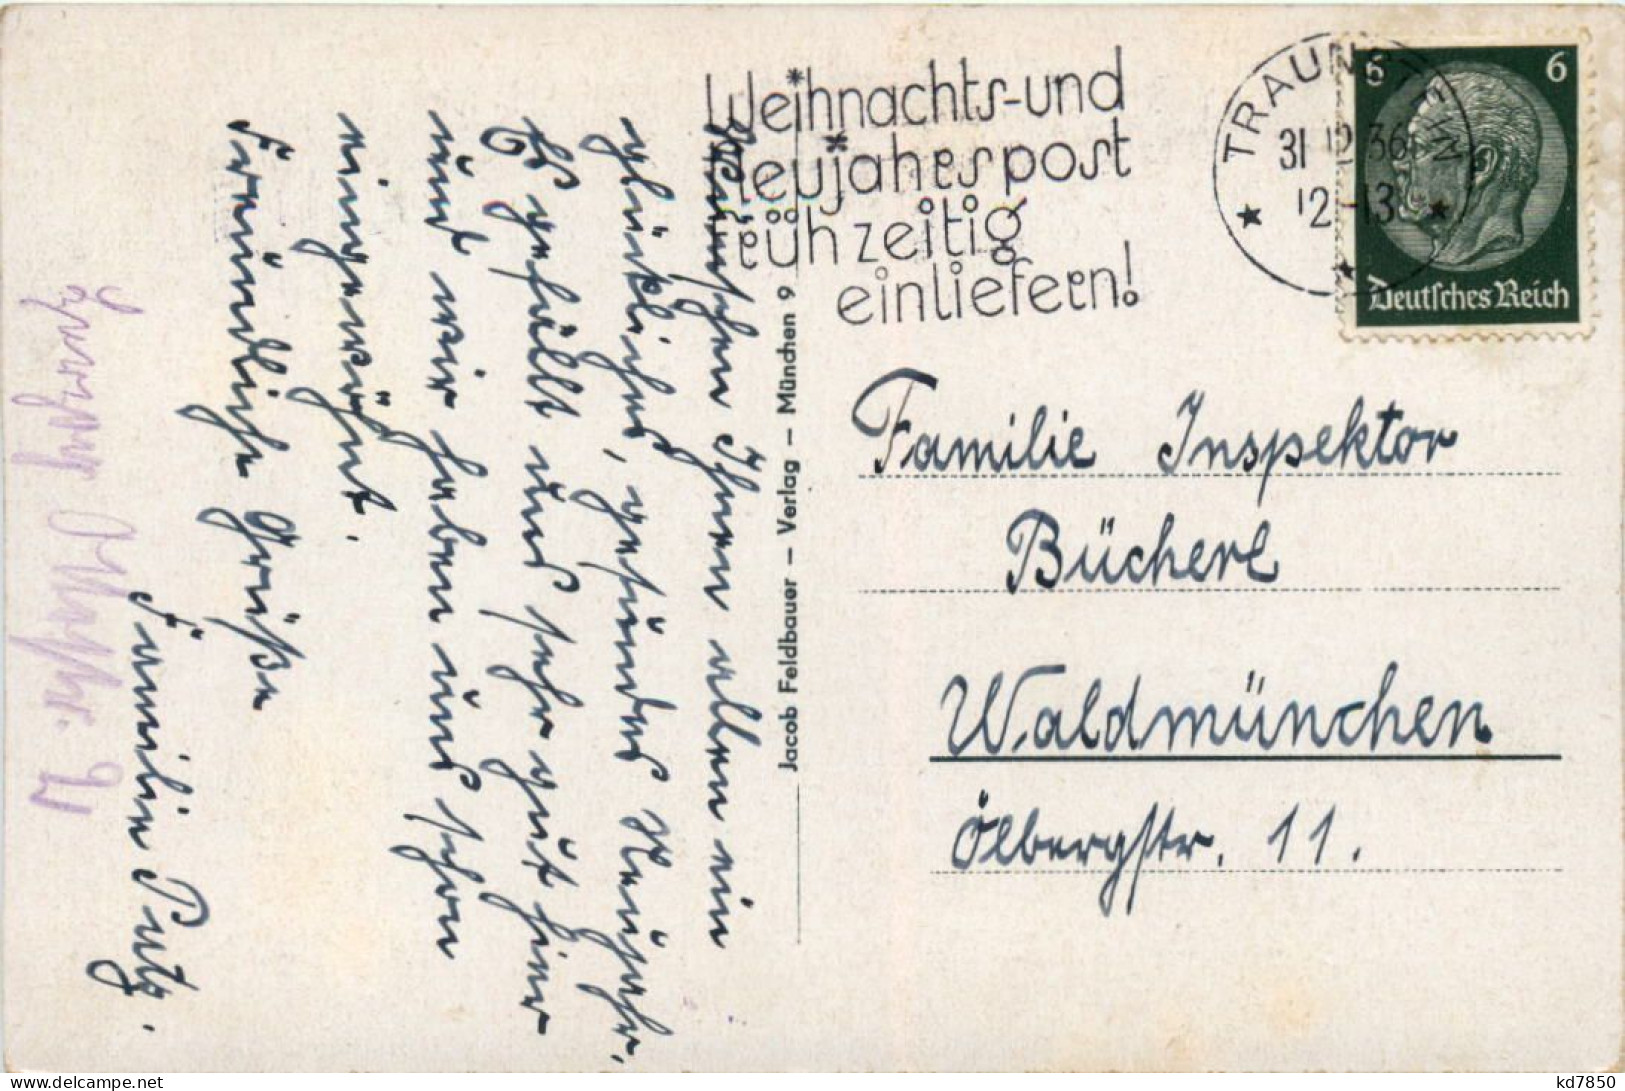 Weihnachts-und
Neujahrspost
frühzeitig
einliefern!
TRAUNSTEIN
31 12 36
12-13
6 6
Deutsches Reich
Familie Inspektor
Bücherl
Waldmünchen
Ölbergstr. 11.
Jacob Feldbauer – Verlag – München 9
Wünschen Ihnen allen ein
glückliches, gesundes Neujahr.
Es gefällt uns sehr gut hier
und wir haben uns schon
eingewöhnt.
Freundliche Grüße
Familie Putz.
kd7850